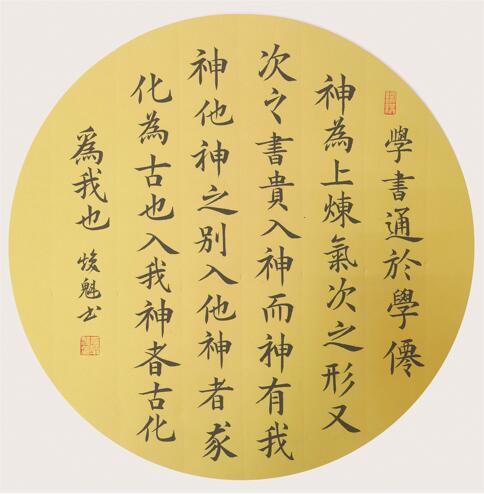 學書通於學僊
神為上煉氣次之形又
次之書貴入神而神有我
神他神之别入他神者我
化為古也入我神者古化
為我也 魁书